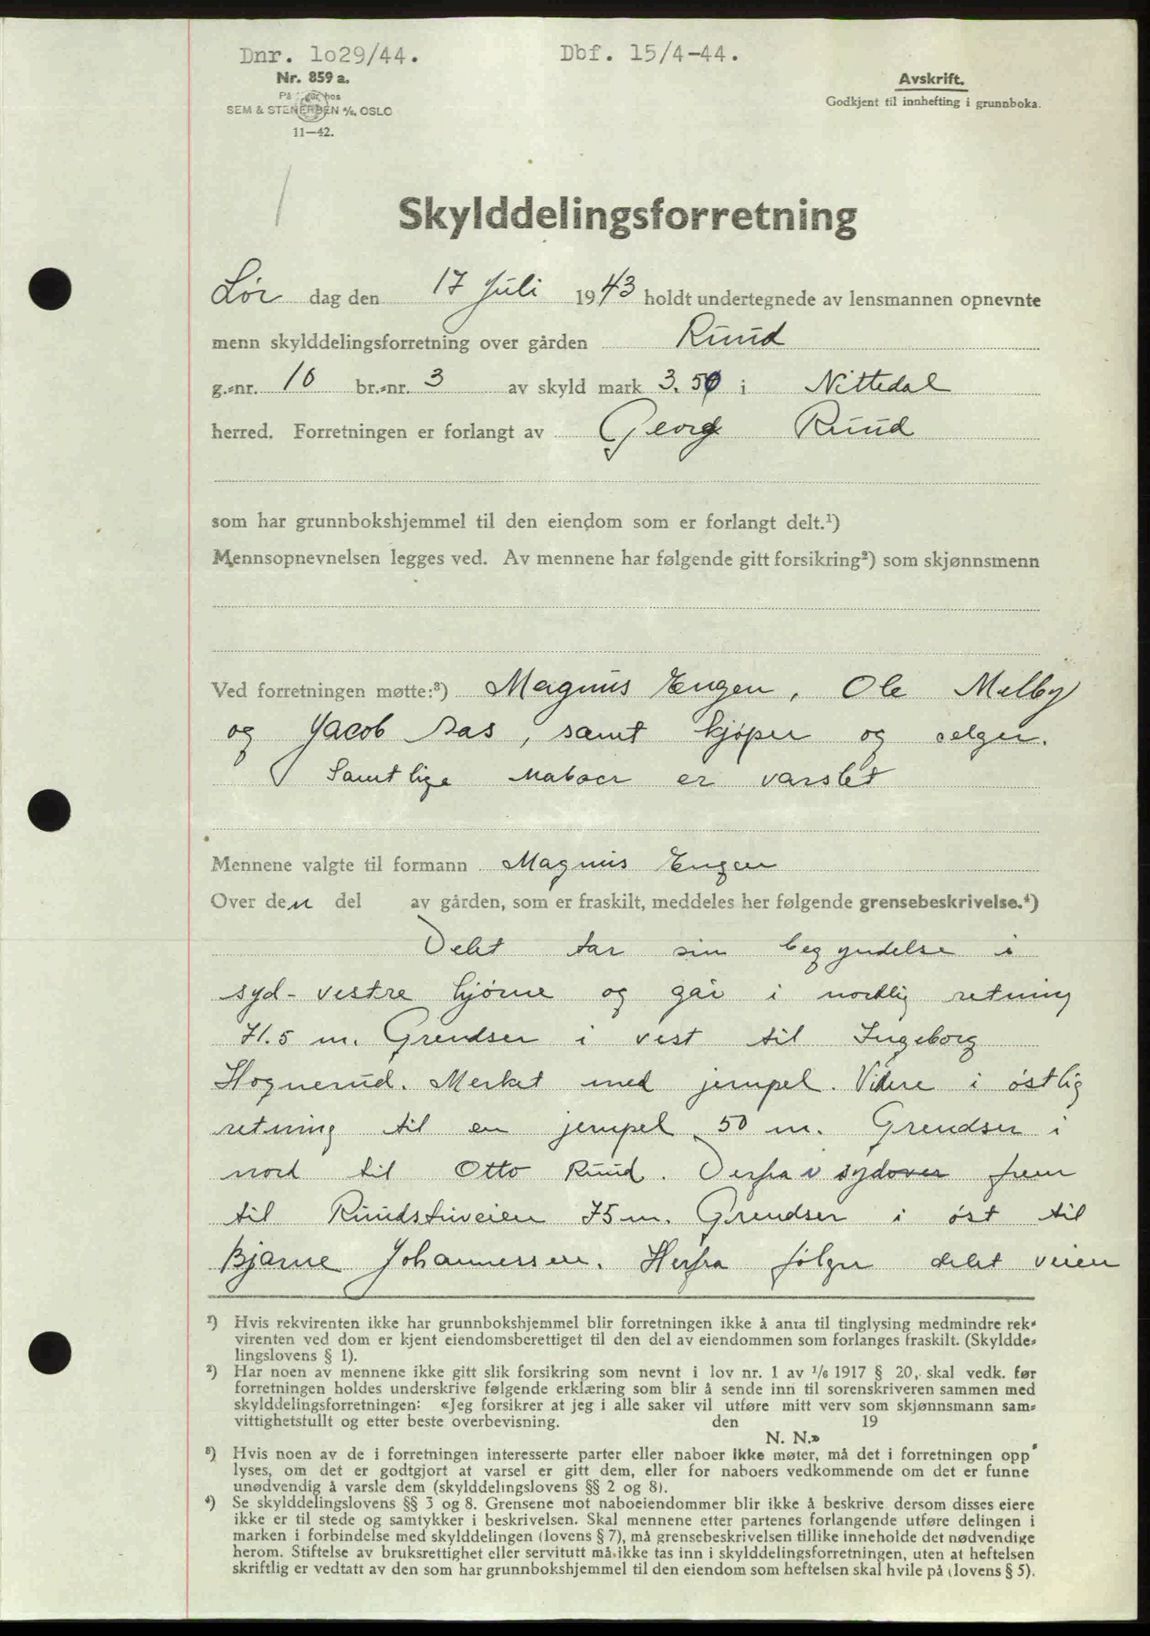 Dnr. 1029/44.
Dbf. 15/4-44.
Nr. 859 a.
På lager hos
SEM & STENERSEN A/S, OSLO
11—42.
Avskrift.
Godkjent til innhefting i grunnboka.
Skylddelingsforretning
Lør dag den 17 juli 1943 holdt undertegnede av lensmannen opnevnte
menn skylddelingsforretning over gården Ruud
g.-nr. 10 br.-nr. 3 av skyld mark 3.50 i Nittedal
herred. Forretningen er forlangt av Georg Ruud
som har grunnbokshjemmel til den eiendom som er forlangt delt.¹)
Mennsopnevnelsen legges ved. Av mennene har følgende gitt forsikring²) som skjønnsmenn
Ved forretningen møtte:³) Magnus Engen, Ole Melby
og Jacob Aas, samt kjøper og selger.
Samtlige naboer er varslet
Mennene valgte til formann Magnus Engen
Over den del av gården, som er fraskilt, meddeles her følgende grensebeskrivelse.⁴)
Delet tar sin begyndelse i
syd-vestre hjørne og går i nordlig retning
71.5 m. Grendser i vest til Ingeborg
Hognerud. Merket med jernpel. Videre i østlig
retning til en jernpel 50 m. Grendser i
nord til Otto Ruud. Derfra i sydover frem
til Ruudstuveien 75 m. Grendser i øst til
Bjarne Johannessen. Herfra følger delet veien
¹) Hvis rekvirenten ikke har grunnbokshjemmel blir forretningen ikke å anta til tinglysing medmindre rek-
virenten ved dom er kjent eiendomsberettiget til den del av eiendommen som forlanges fraskilt. (Skyldde-
lingslovens § 1).
²) Har noen av mennene ikke gitt slik forsikring som nevnt i lov nr. 1 av 1/6 1917 § 20, skal vedk. før
forretningen holdes underskrive følgende erklæring som blir å sende inn til sorenskriveren sammen med
skylddelingsforretningen: «Jeg forsikrer at jeg i alle saker vil utføre mitt verv som skjønnsmann sam-
vittighetsfullt og etter beste overbevisning. den 19
N. N.»
³) Hvis noen av de i forretningen interesserte parter eller naboer ikke møter, må det i forretningen opp-
lyses, om det er godtgjort at varsel er gitt dem, eller for naboers vedkommende om det er funne
unødvendig å varsle dem (skylddelingslovens §§ 2 og 8).
⁴) Se skylddelingslovens §§ 3 og 8. Grensene mot naboeiendommer blir ikke å beskrive dersom disses eiere
ikke er til stede og samtykker i beskrivelsen. Skal mennene etter partenes forlangende utføre delingen i
marken i forbindelse med skylddelingen (lovens § 7), må grensebeskrivelsen tillike inneholde det nødvendige
herom. Stiftelse av bruksrettighet eller servitutt må ikke tas inn i skylddelingsforretningen, uten at heftelsen
skriftlig er vedtatt av den som har grunnbokshjemmel til den eiendom som heftelsen skal hvile på (lovens § 5).